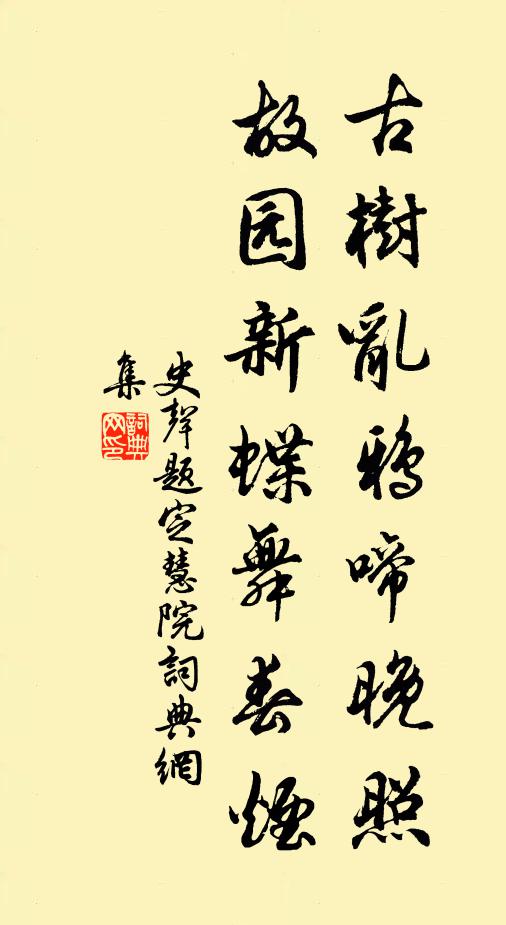 古樹亂鴉啼晚照
故园新蝶舞春煙
史聲題定慧院詞典網
集
詞典
网印